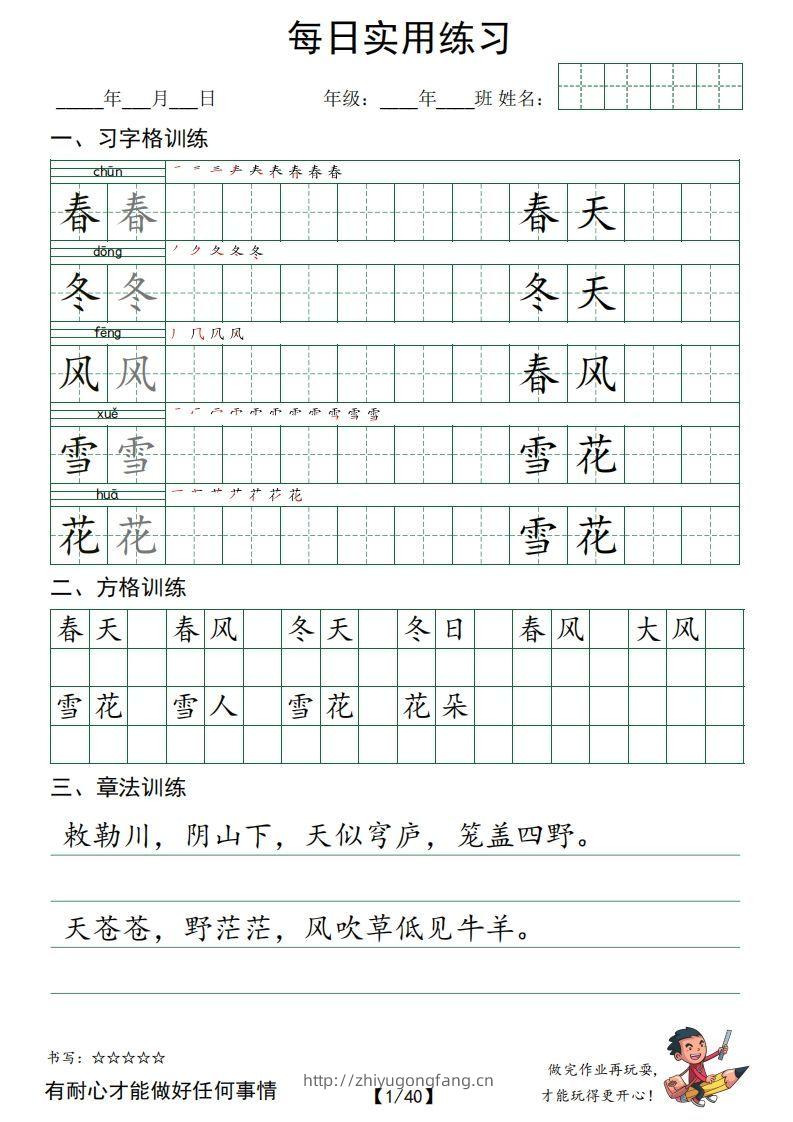 每日实用练习
_____年___月___日 年级：____年____班 姓名：
一、习字格训练
chūn
春 春 春 天
dōng
冬 冬 冬 天
fēng
风 风 春 风
xuě
雪 雪 雪 花
huā
花 花 雪 花
二、方格训练
春天 春风 冬天 冬日 春风 大风
雪花 雪人 雪花 花朵
三、章法训练
敕勒川，阴山下，天似穹庐，笼盖四野。
天苍苍，野茫茫，风吹草低见牛羊。
书写：☆☆☆☆☆
有耐心才能做好任何事情
http://zhiyugongfang.cn
【1/40】
做完作业再玩耍，
才能玩得更开心！